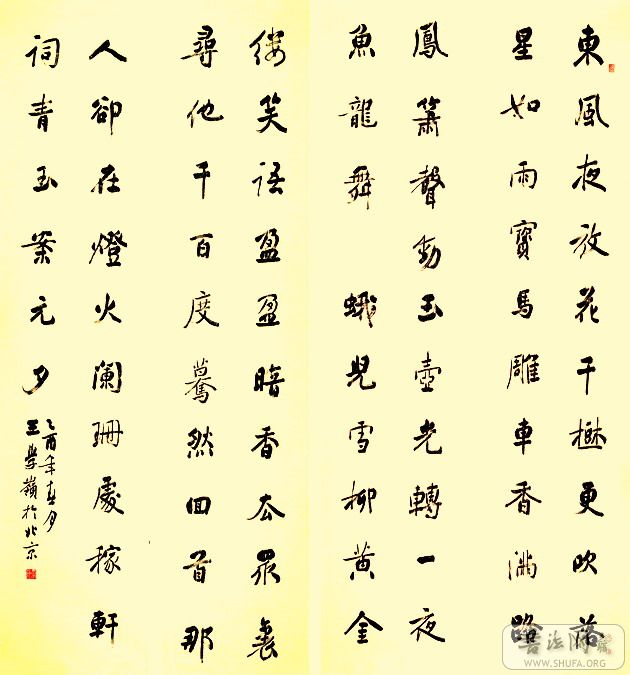 東風夜放花千樹更吹落
星如雨寶馬雕車香滿路
鳳簫聲動玉壺光轉一夜
魚龍舞 蛾兒雪柳黃金
縷笑語盈盈暗香去眾裏
尋他千百度驀然回首那
人卻在燈火闌珊處稼軒
詞青玉案元夕
乙酉年春月
王學嶺於北京
WWW.SHUFA.ORG